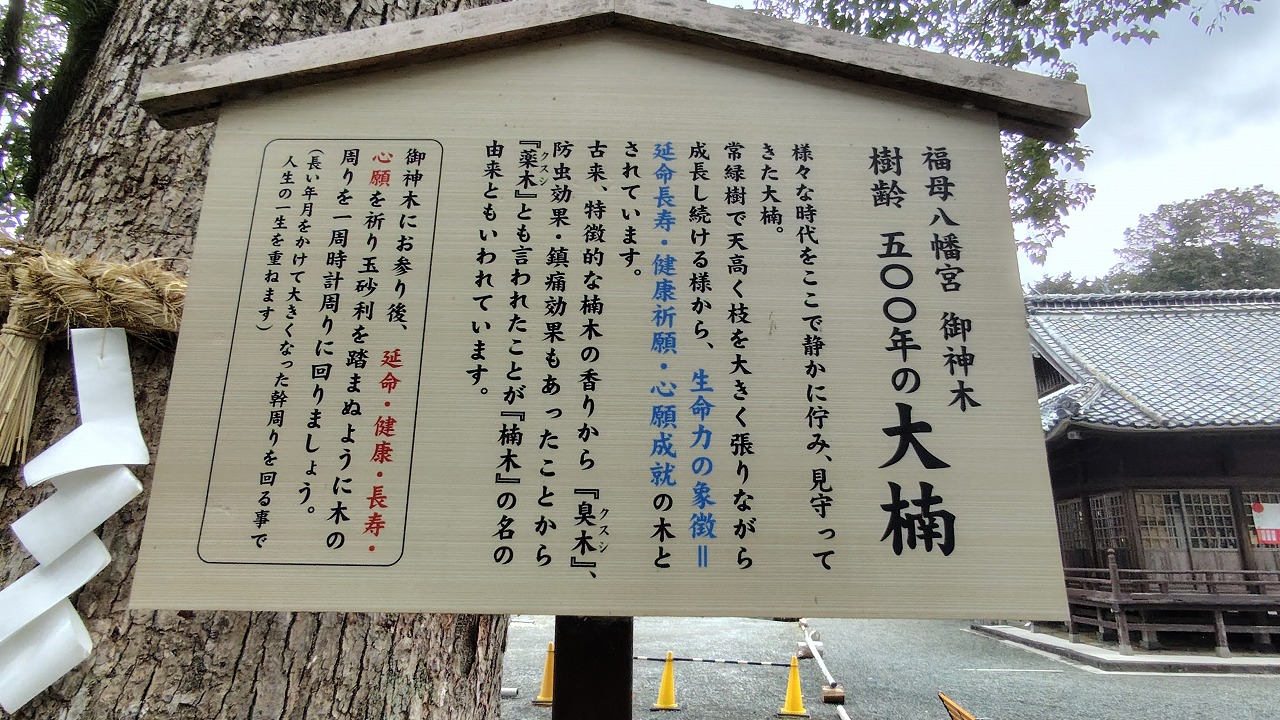 福母八幡宮 御神木
樹齢 五〇〇年の大楠
様々な時代をここで静かに佇み、見守って
きた大楠。
常緑樹で天高く枝を大きく張りながら
成長し続ける様から、生命力の象徴＝
延命長寿・健康祈願・心願成就の木と
されています。
古来、特徴的な楠木の香りから『臭木』、
クスシ
防虫効果・鎮痛効果もあったことから
『薬木』とも言われたことが『楠木』の名の
クスシ
由来ともいわれています。
御神木にお参り後、延命・健康・長寿・
心願を祈り玉砂利を踏まぬように木の
周りを一周時計周りに回りましょう。
（長い年月をかけて大きくなった幹周りを回る事で
人生の一生を重ねます）